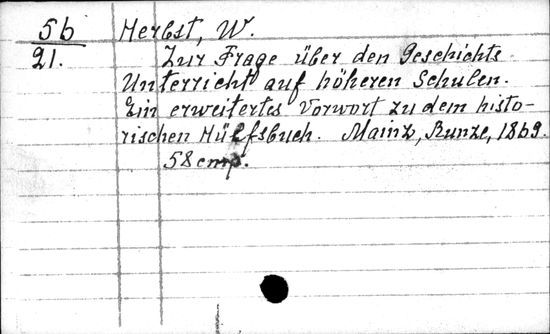 5b
21.
Herbst, W.
Zur Frage über den Geschichts
Unterricht auf höheren Schulen.
Ein erweitertes Vorwort zu dem histo-
rischen Hülfsbuch. Mainz, Kunze, 1869.
58